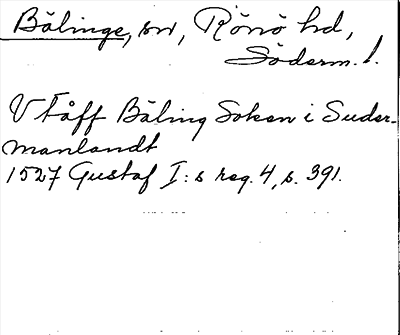 Bälinge, sn, Rönö hd,
Söderm. l.
V Fåff Bäling Soken i Suder-
manlandt
1527 Gustaf I:s reg. 4, s. 391.